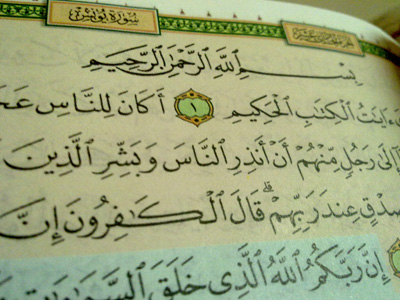 سُورَةُ يُونُسَ
بِسْمِ ٱللَّهِ ٱلرَّحْمَٰنِ ٱلرَّحِيمِ
ءَايَٰتُ ٱلْكِتَٰبِ ٱلْحَكِيمِ ١ أَكَانَ لِلنَّاسِ
إِلَىٰ رَجُلٍ مِّنْهُمْ أَنْ أَنذِرِ ٱلنَّاسَ وَبَشِّرِ ٱلَّذِينَ
صِدْقٍ عِندَ رَبِّهِمْ ۗ قَالَ ٱلْكَٰفِرُونَ إِنَّ
إِنَّ رَبَّكُمُ ٱللَّهُ ٱلَّذِى خَلَقَ ٱلسَّمَٰوَٰتِ